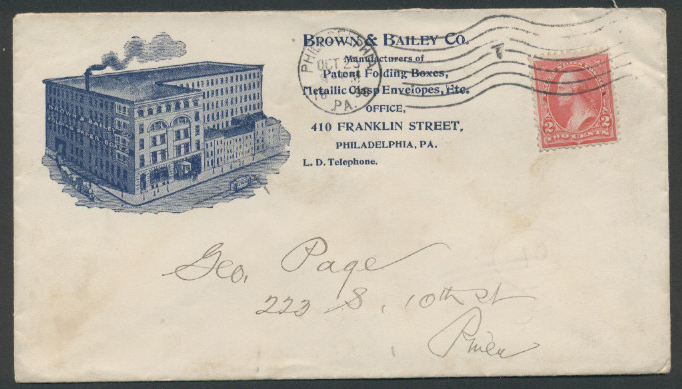 BROWN & BAILEY CO.
Manufacturers of
Patent Folding Boxes,
Metallic Clasp Envelopes, Etc.
OFFICE,
410 FRANKLIN STREET,
PHILADELPHIA, PA.
L. D. Telephone.
PHILADELPHIA
OCT 25
PA.
T
2 2
TWO CENTS
Geo. Page
223 S. 10th st
Phila